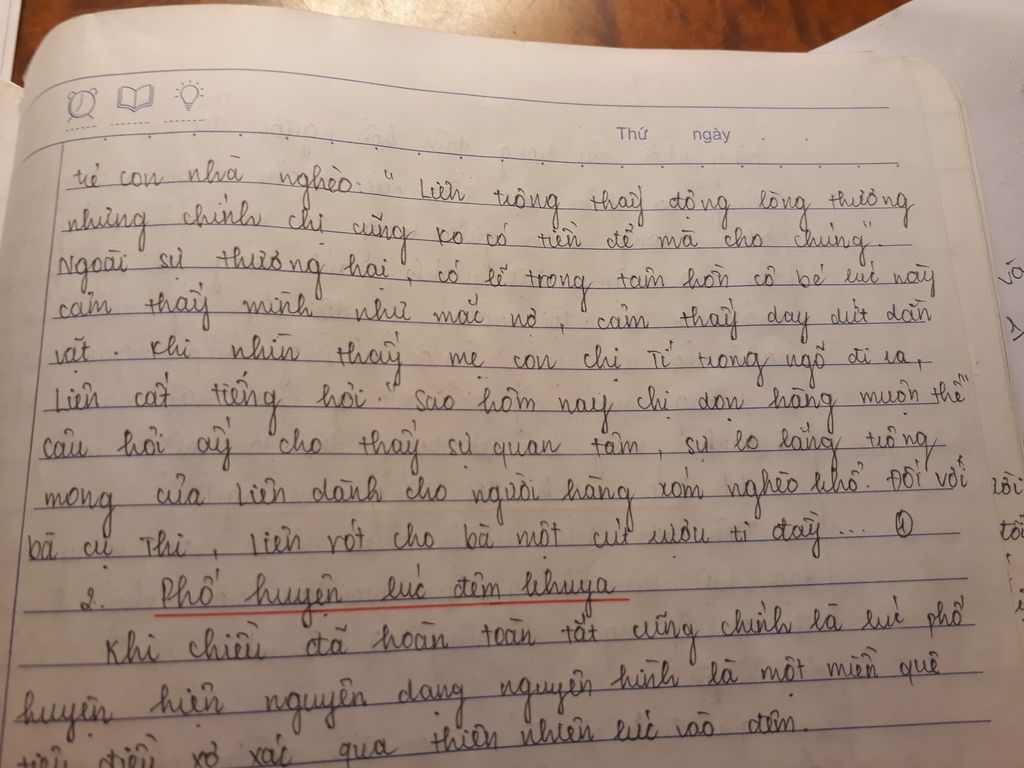 Thứ ngày
trẻ con nhà nghèo. "Liên trông thấy động lòng thương
nhưng chính chị cũng ko có tiền để mà cho chúng".
Ngoài sự thương hại, có lẽ trong tâm hồn cô bé lúc này
cảm thấy mình như mắc nợ, cảm thấy day dứt dằn
vặt. Khi nhìn thấy mẹ con chị Tí trong ngõ đi ra,
Liên cất tiếng hỏi "sao hôm nay chị dọn hàng muộn thế"
câu hỏi ấy cho thấy sự quan tâm, sự lo lắng trông
mong của Liên dành cho người hàng xóm nghèo khổ. Đối với
bà cụ Thi, Liên rót cho bà một cút rượu ti đầy... ①
2. Phố huyện lúc đêm khuya
Khi chiều đã hoàn toàn tắt cũng chính là lúc phố
huyện hiện nguyên dạng nguyên hình là một miền quê
tiêu điều xơ xác qua thiên nhiên lúc vào đêm.